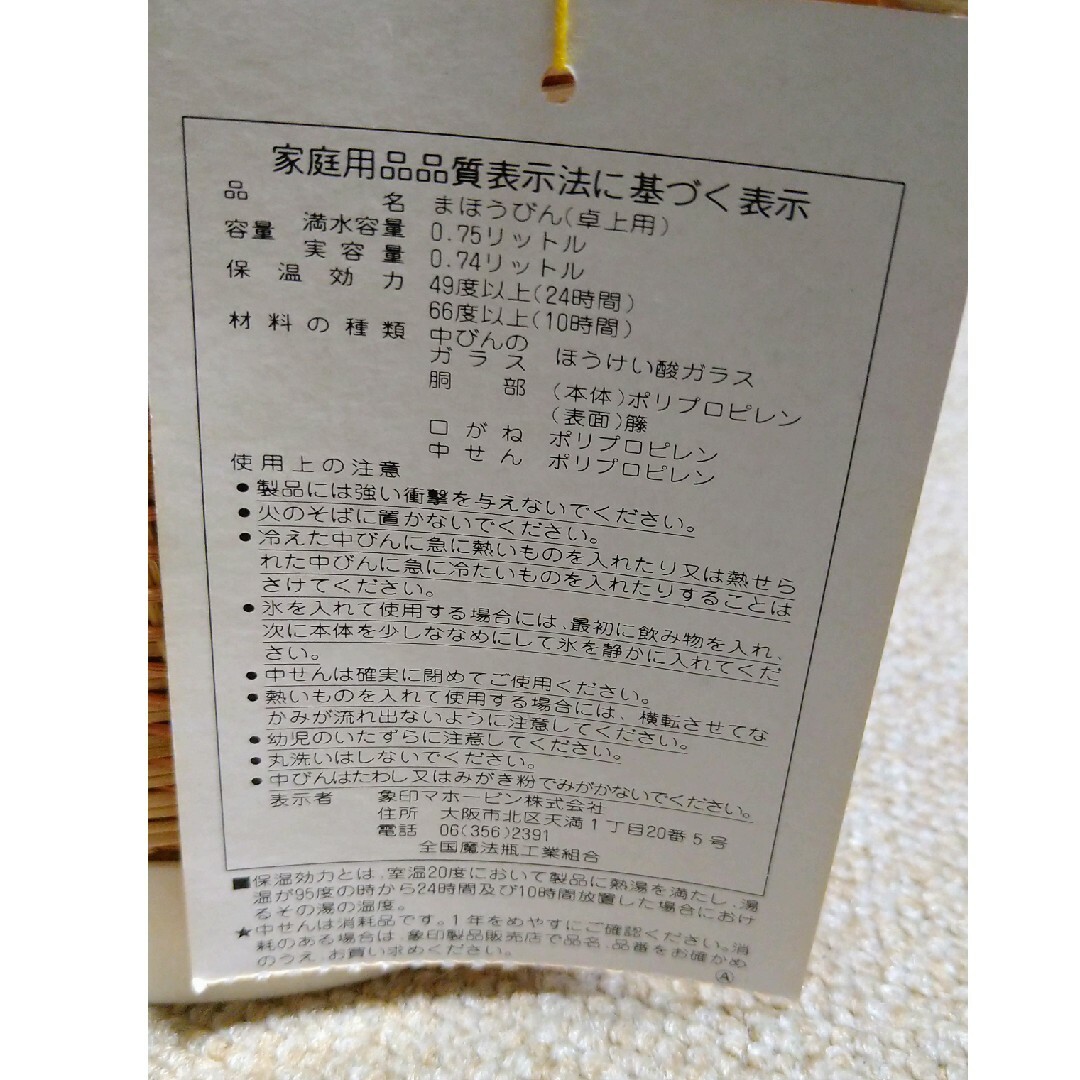 家庭用品品質表示法に基づく表示
品名 まほうびん(卓上用)
容量 満水容量 0.75リットル
実容量 0.74リットル
保温効力 49度以上(24時間)
66度以上(10時間)
材料の種類 中びんの
ガラス ほうけい酸ガラス
胴部 (本体)ポリプロピレン
(表面)籐
口がね ポリプロピレン
中せん ポリプロピレン
使用上の注意
●製品には強い衝撃を与えないでください。
●火のそばに置かないでください。
●冷えた中びんに急に熱いものを入れたり又は熱せら
れた中びんに急に冷たいものを入れたりすることは
さけてください。
●氷を入れて使用する場合には、最初に飲み物を入れ、
次に本体を少しななめにして氷を静かに入れてくだ
さい。
●中せんは確実に閉めてご使用ください。
●熱いものを入れて使用する場合には、横転させてな
かみが流れ出ないように注意してください。
●幼児のいたずらに注意してください。
●丸洗いはしないでください。
●中びんはたわし又はみがき粉でみがかないでください。
表示者 象印マホービン株式会社
住所 大阪市北区天満1丁目20番5号
電話 06(356)2391
全国魔法瓶工業組合
■保温効力とは、室温20度において製品に熱湯を満たし、湯
温が95度の時から24時間及び10時間放置した場合におけ
るその湯の温度。
★中せんは消耗品です。1年をめやすにご確認ください。消
耗のある場合は、象印製品販売店で品名、品番をお確かめ
のうえ、お買い求めください。
Ⓐ